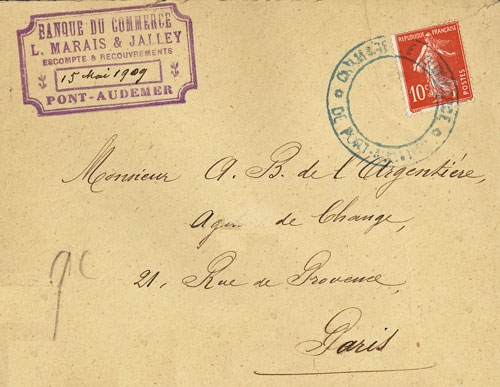 BANQUE DU COMMERCE
L. MARAIS & JALLEY
ESCOMPTE & RECOUVREMENTS
15 Mai 1909
PONT-AUDEMER
REPUBLIQUE FRANÇAISE
10c
POSTES
Monsieur A. B. de l'Argentière,
de Change,
21, Rue de Provence,
Paris